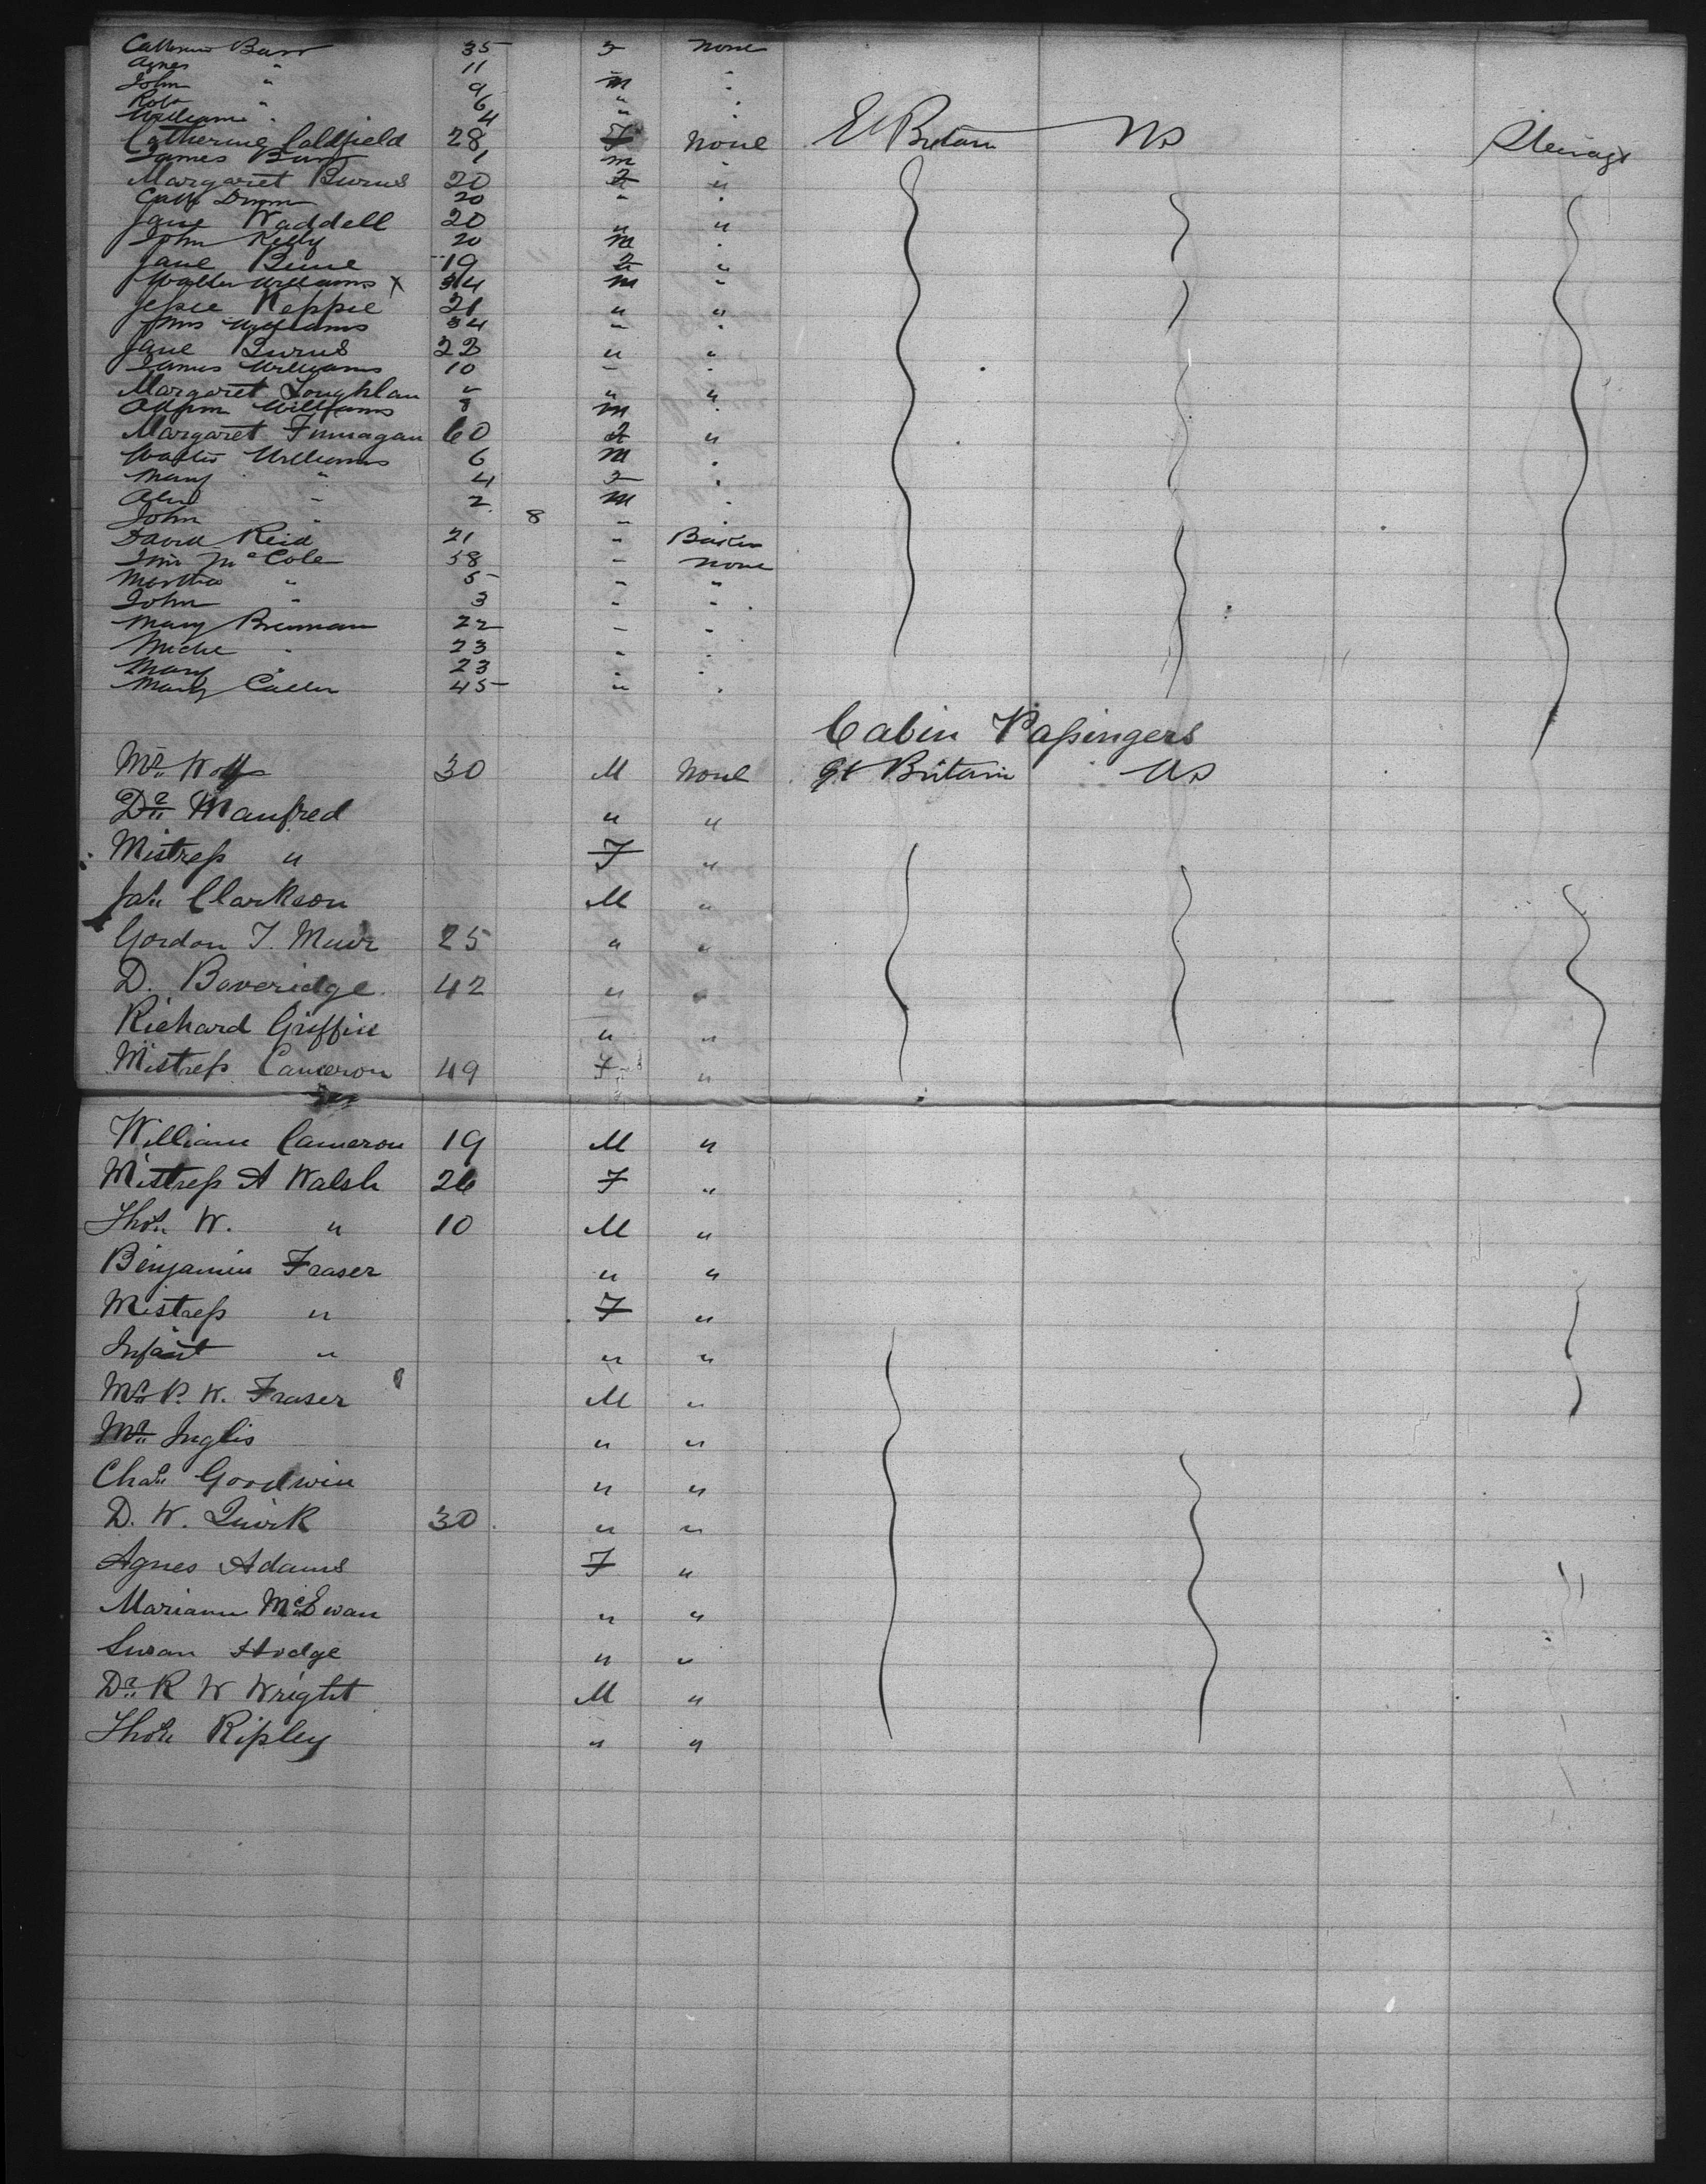 Catherine Barr 35 F none
Agnes " 11 " "
John " 9 m "
Robt " 6 " "
William " 4 " "
Catherine Coldfield 28 F None Gt Britain US Steerage
James Barr 1 m "
Margaret Burns 20 F "
Cath 20 " "
Jane Waddell 20 " "
John Kelly 20 m "
Jane 19 F "
Walter Williams X 34 m "
Jessie Neppie 21 " "
Mrs Williams 34 " "
Jane Burns 22 " "
James Williams 10 " "
Margaret Loughlan " " "
Adam Williams 8 m "
Margaret Finnagan 60 F "
Walter Williams 6 m "
Mary " 4 F "
Alex " 2 m "
John " 8 " "
David Reid 21 " Baker
McCole 38 " none
Martha " 5 " "
John " 3 " "
Mary Brennan 22 " "
" 23 " "
Mary " 23 " "
Mary 45 " "
Cabin Passengers
Mr. Wolf 30 M None Gt Britain US
Dr. Manfred " "
Mistress " F "
Jas. Clarkson M "
Gordon T. Muir 25 " "
D. Boveridge 42 " "
Richard Griffin " "
Mistress Cameron 49 F "
William Cameron 19 M "
Mistress A Walsh 26 F "
Thos. W. " 10 M "
Benjamin Fraser " "
Mistress " F "
Infant " " "
Mr. P. W. Fraser M "
Mr. Inglis " "
Chas. Goodwin " "
D. W. Quirk 30 " "
Agnes Adams F "
Mariann McEwan " "
Susan Hodge " "
Dr. R W Wright M "
Thos. Ripley " "